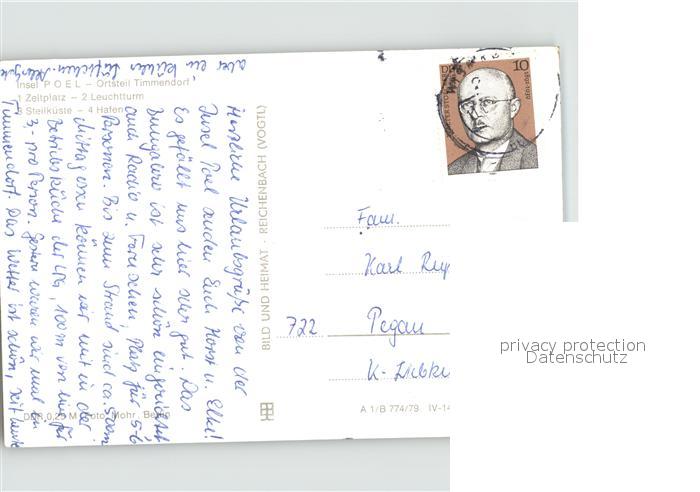 Insel POEL – Ortsteil Timmendorf
1 Zeltplatz – 2 Leuchtturm
3 Steilküste – 4 Hafen
Herzliche Urlaubsgrüße von der
Insel Poel senden Euch Horst u. Elke!
Es gefällt uns hier sehr gut. Das
Bungalow ist sehr schön eingerichtet
auch Radio u. Fernsehen, Platz für 5-6
Personen. Bis zum Strand sind ca. 500m
Mittagessen können wir mit in der
Betriebsküche der LPG, 100m von hier für
3,- pro Person. Gestern waren wir mal in
Timmendorf. Das Wetter ist schön, seit heute
aber ein kühles Lüftchen.
BILD UND HEIMAT · REICHENBACH (VOGTL)
DDR 10
1891-1950
Fam.
Karl
722 Pegau
K-
A 1/B 774/79 IV-14
DDR 0,25 M Foto: Mohr, Berlin
privacy protection
Datenschutz